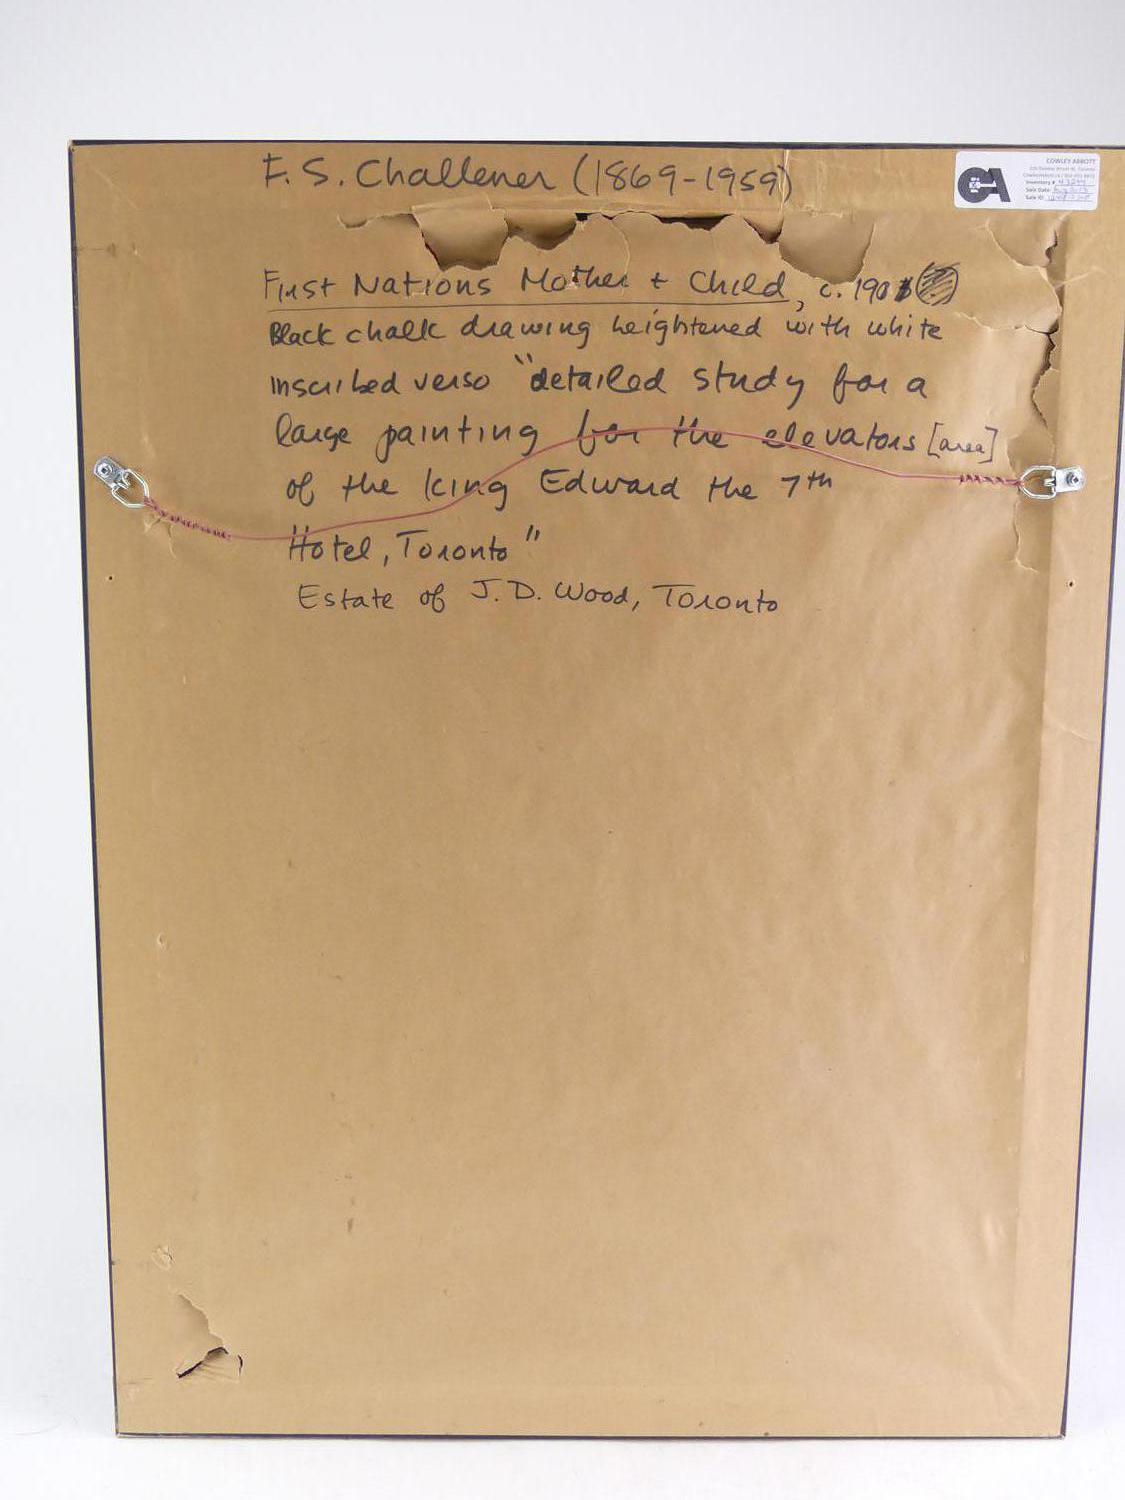 F. S. Challener (1869-1959)
First Nations Mother + Child, c. 190
Black chalk drawing heightened with white
inscribed verso "detailed study for a
large painting for the elevators [area]
of the King Edward the 7th
Hotel, Toronto"
Estate of J. D. Wood, Toronto
CA
COWLEY ABBOTT
Inventory #
Sale Date:
Sale ID: